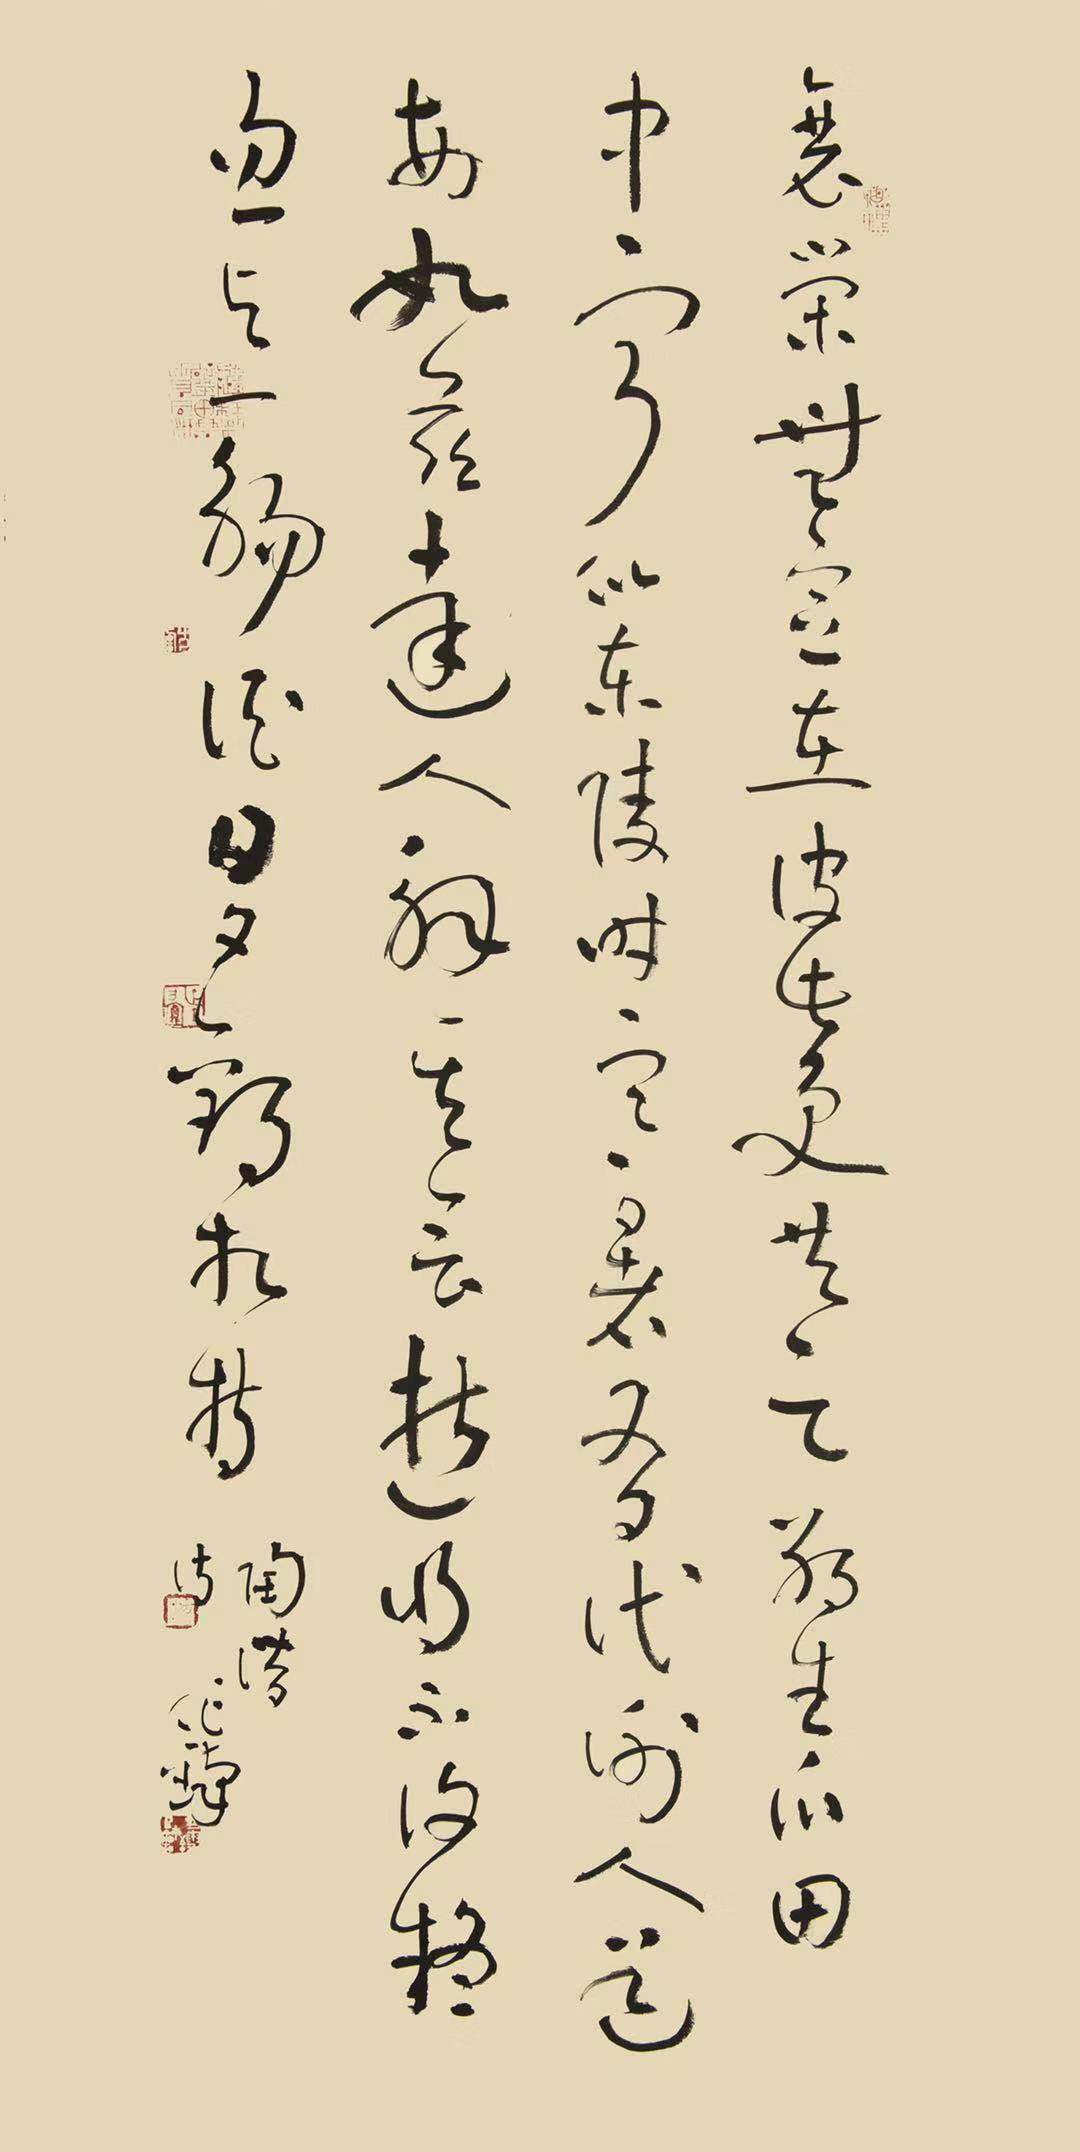 衰榮無定在彼此更共之邵生瓜田
中寧似東陵時寒暑有代謝人道
每如茲達人解其會逝將不復疑
忽與一觴酒日夕歡相持
陶潛
詩